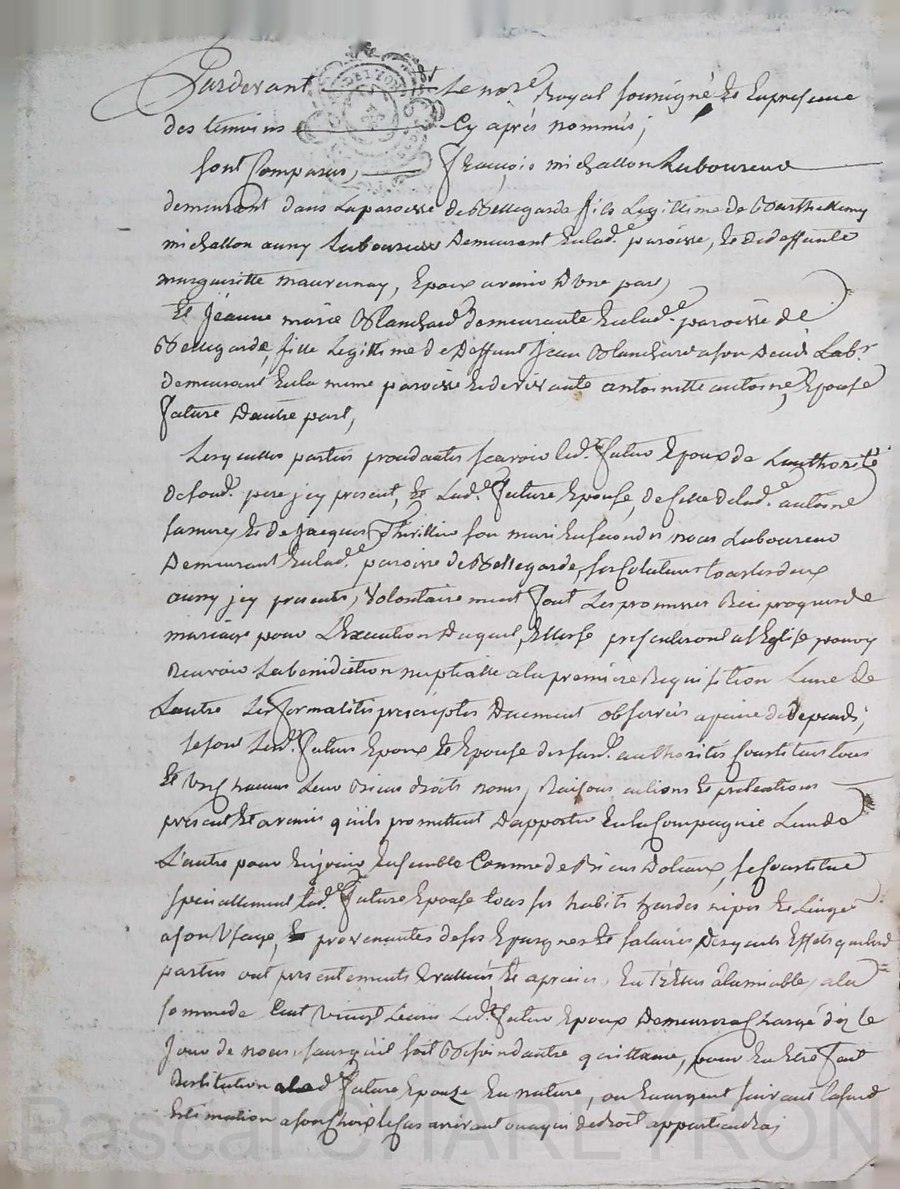 Pardevant Le nore Royal soussigné Et En presence
des temoins Cy après nommés;
sont Comparus, françois michallon Laboureur
demeurant dans La paroisse de Bellegarde fils Legittime de Barthellemy
michallon aussy Laboureur Demeurant En lad.e paroisse, Et de deffunte
margueritte maurenay, Epoux avenir D'Une part,
Et Jeanne marie Blanchard demeurante En lad.e paroisse de
Bellegarde, fille Legittime de Deffunt Jean Blanchard a son Deces Labr
demeurant En la meme paroisse Et de vivante antoinette antoine, Epouse
future D'autre part,
Lesquelles parties procedantes scavoir led.t futur Epoux de L'authorité
de sond. pere jcy present, Et Lad.e future Epouse, de Celle de lad. antoine
sa mere Et de Jacques Thivillier son mari En secondes noces Laboureur
Demeurant En lad.e paroisse de Bellegarde, tous les deux
aussy jcy presents, Volontairement font Les promesses Reciproques de
mariage pour L'Execution Duquel, Elles se presenteront a l'Eglise pour y
Recevoir La benediction nuptialle a la première Requisition L'une de
L'autre Les formalités prescriptes Duement observées a peine de depends;
se sont Lesd. futurs Epoux Et Epouse desd. authorités Constitués tous
Et Uns Chacuns Leurs Biens droits noms, Raisons actions Et pretentions
presents Et avenir qu'ils promettent D'apporter En la Compagnie L'un de
L'autre pour En jouir Ensemble Comme de Biens Dotaux, se Constitue
speciallement lad.e future Epouse tous ses habits hardes nipes Et Linges
a son Usage, Et provenantes de ses Epargnes Et salaires Desquels Effets que lesd.
parties ont presentements Evalués Et apreciés, Entr'Elles a l'amiable, a la
somme de Cent Vingt Livres Led. futur Epoux Demeurera Chargé dez le
Jour de noces, sans qu'il soit Besoin d'autre quittance, pour En Etre fait
Restitution a lad. future Epouze En nature, ou En argent suivant lasusd.
Estimation a son Choix le Cas arrivant ou a qui de droit appartiendra;
Pascal CHAREYRON